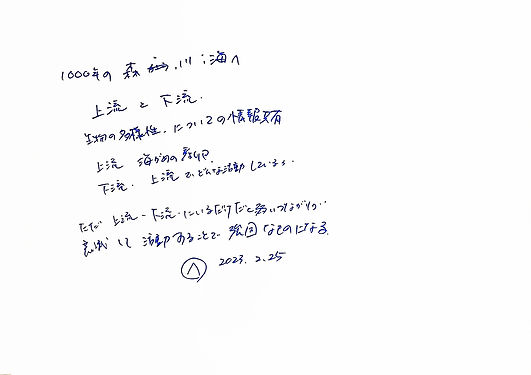 1000年の 森 川 海へ
上流 と 下流.
生物の多様性.についての情報共有
上流 海がめの
下流. 上流でどんな活動しているか
ただ 上流-下流.にいるだけだと弱いつながり..
意識して 活動することで 強固なものになる.
2023. 2.25